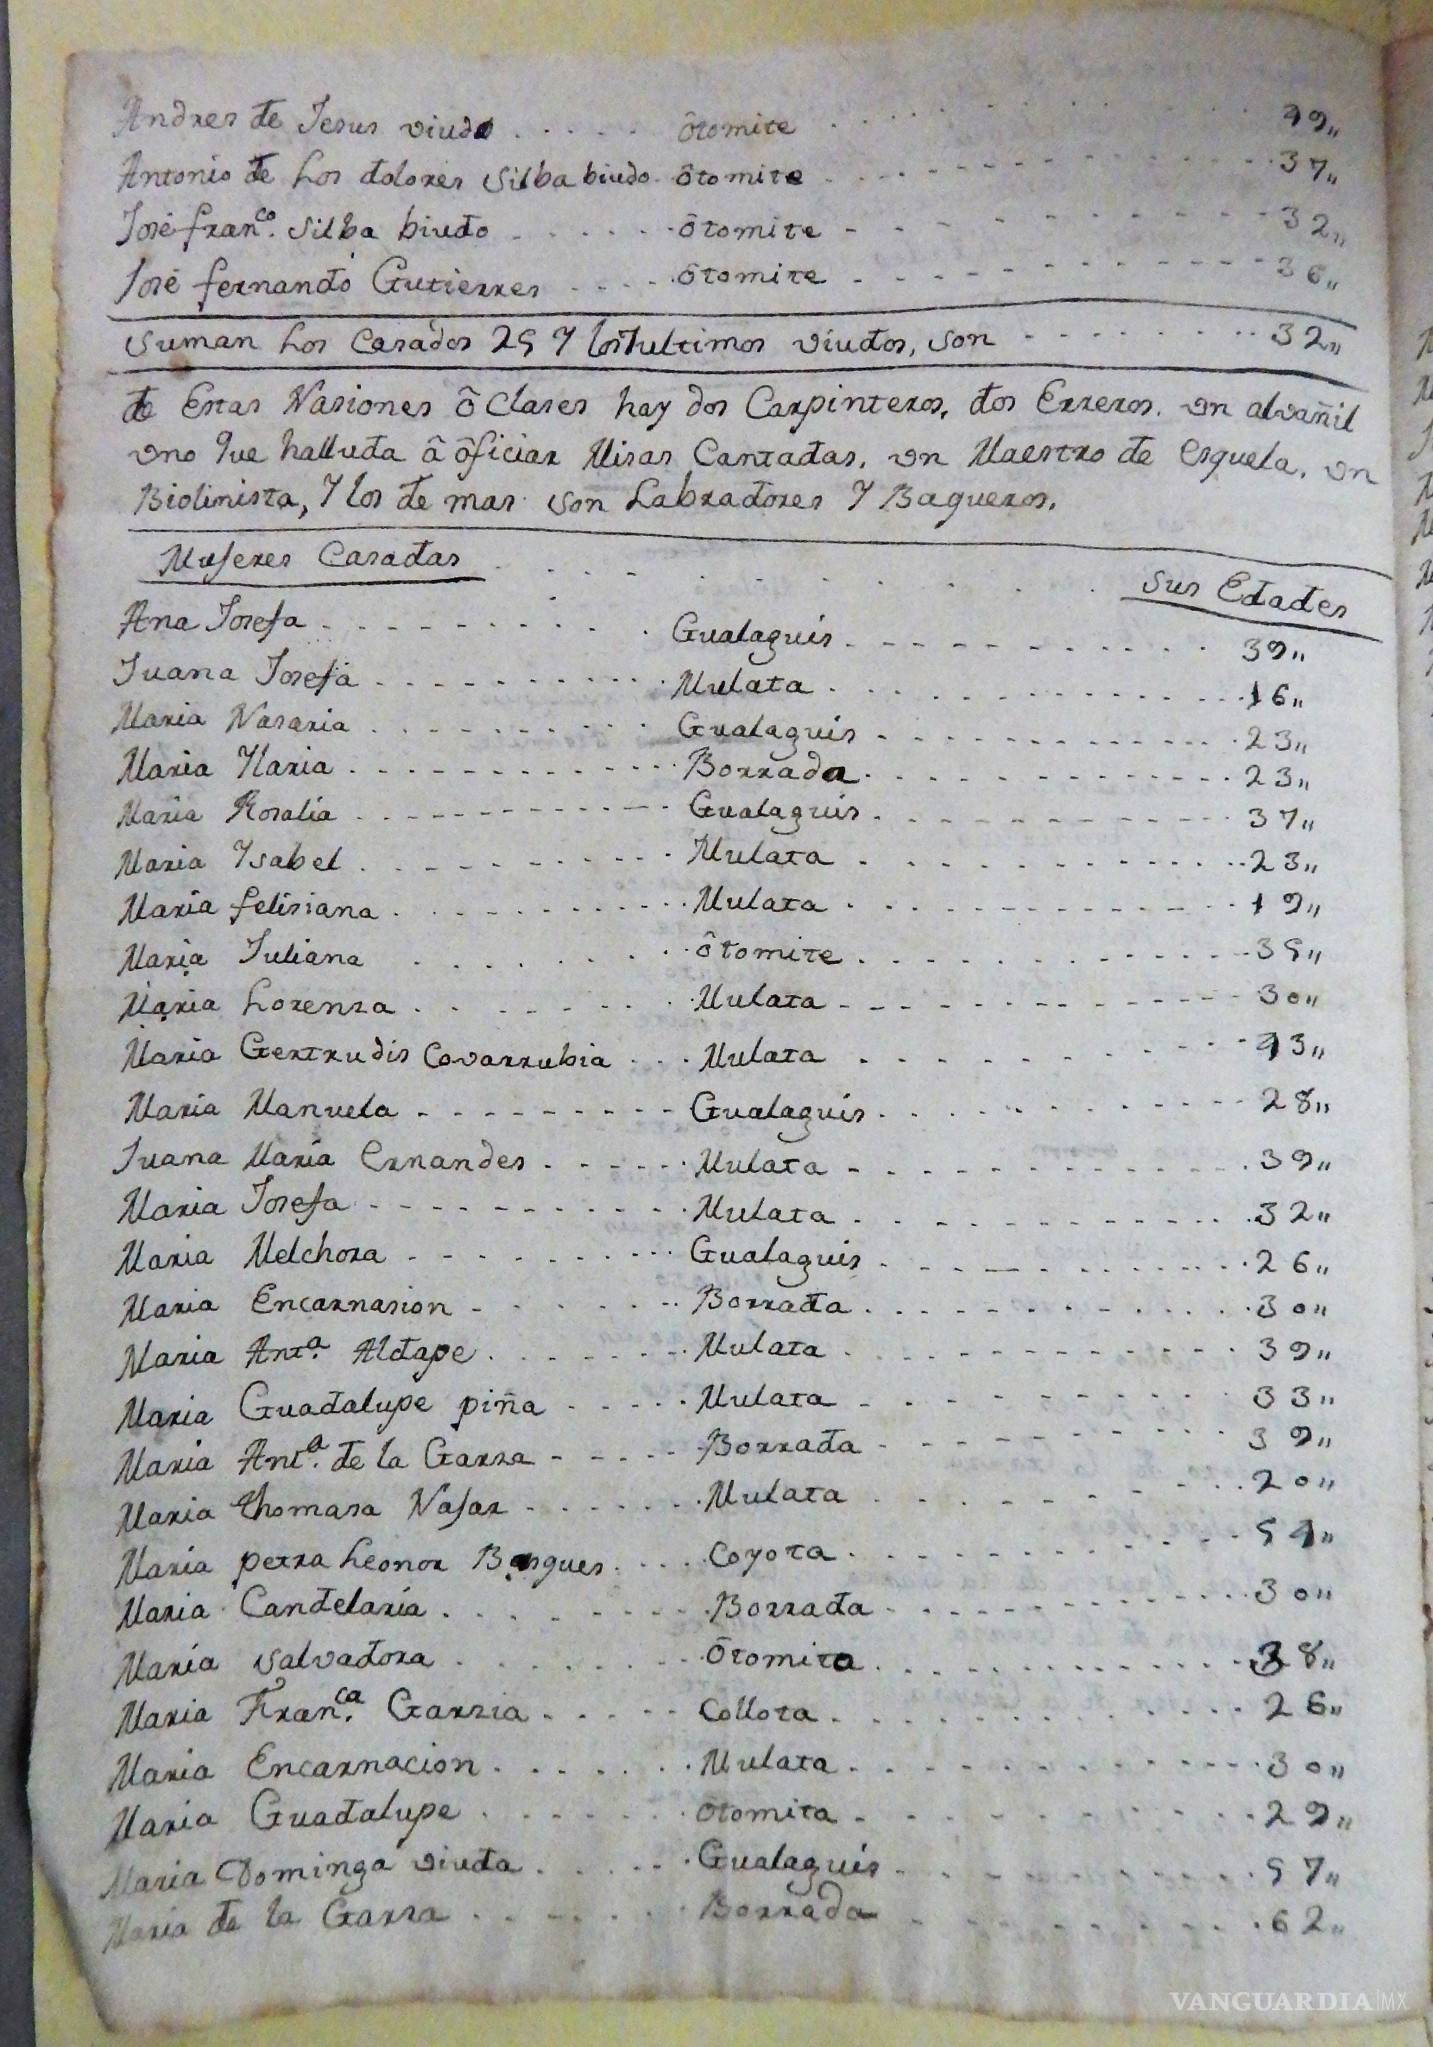 Andres de Jesus viudo ôtomite 49,,
Antonio de Los dolores Silba biudo ôtomite 37,,
José fran.co Silba biudo ôtomite 32,,
José fernando Gutierres ôtomite 36,,
Suman Los Casados 25 Y los ultimos viudos, son 32,,
de Estas Nasiones ô Clases hay dos Carpinteros, dos Erreros. un alvañil
uno que halluda â ôficiar Misas Cantadas, un Maestro de esquela, un
Biolinista, Y los de mas son Labradores Y Baqueros.
Mujeres Casadas Sus Edades
Ana Josefa Gualaguis 39,,
Juana Josefa Mulata 16,,
Maria Nasaria Gualaguis 23,,
Maria Ylaria Borrada 23,,
Maria Rosalia Gualaguis 37,,
Maria Ysabel Mulata 23,,
Maria felisiana Mulata 19,,
Maria Juliana ôtomite 35,,
Maria Lorensa Mulata 30,,
Maria Gertrudis Covarrubia Mulata 43,,
Maria Manuela Gualaguis 28,,
Juana Maria Ernandes Mulata 39,,
Maria Josefa Mulata 32,,
Maria Melchora Gualaguis 26,,
Maria Encarnasion Borrada 30,,
Maria Ant.a Aldape Mulata 39,,
Maria Guadalupe piña Mulata 33,,
Maria Ant.a de la Garsa Borrada 39,,
Maria thomasa Najar Mulata 20,,
Maria petra Leonor Coyota 54,,
Maria Candelaria Borrada 30,,
Maria Salvadora Ôtomita 38,,
Maria Fran.ca Garsia Collota 26,,
Maria Encarnacion Mulata 30,,
Maria Guadalupe ôtomita 29,,
Maria Dominga viuda Gualaguis 57,,
Maria de la Garsa Borrada 62,,
VANGUARDIA|MX